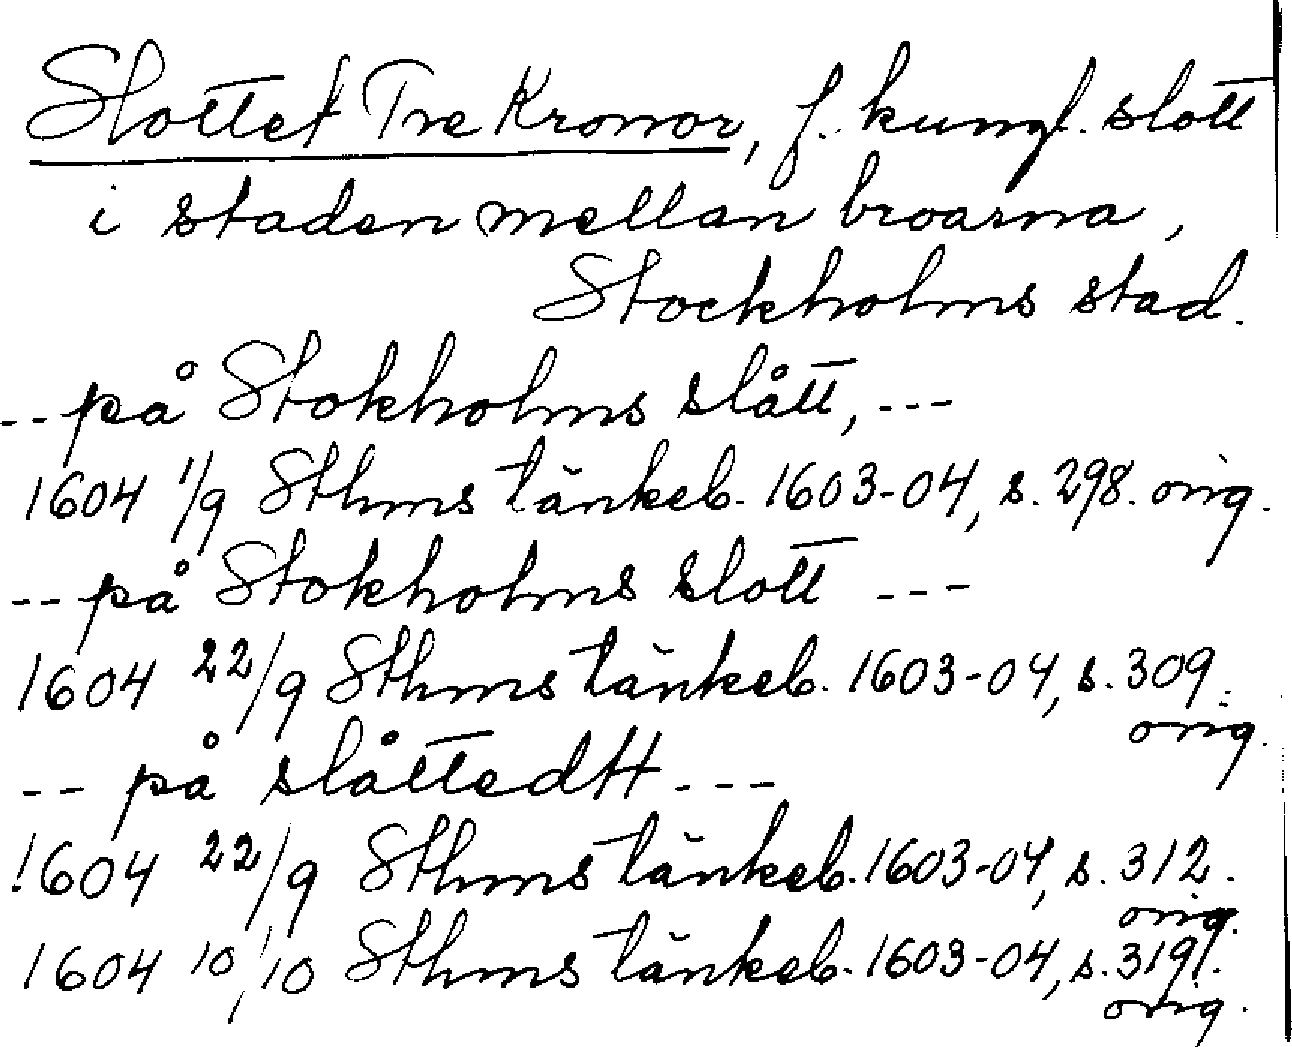 Slottet Tre Kronor, f. kungl. slott
i staden mellan broarna,
Stockholms stad.
-- på Stokholms slått, ---
1604 1/9 Sthms tänkeb. 1603-04, s. 298. orig.
-- på Stokholms slott ---
1604 22/9 Sthms tänkeb. 1603-04, s. 309.
orig.
-- på slåttedtt ---
1604 22/9 Sthms tänkeb. 1603-04, s. 312.
orig.
1604 10/10 Sthms tänkeb. 1603-04, s. 319.
orig.